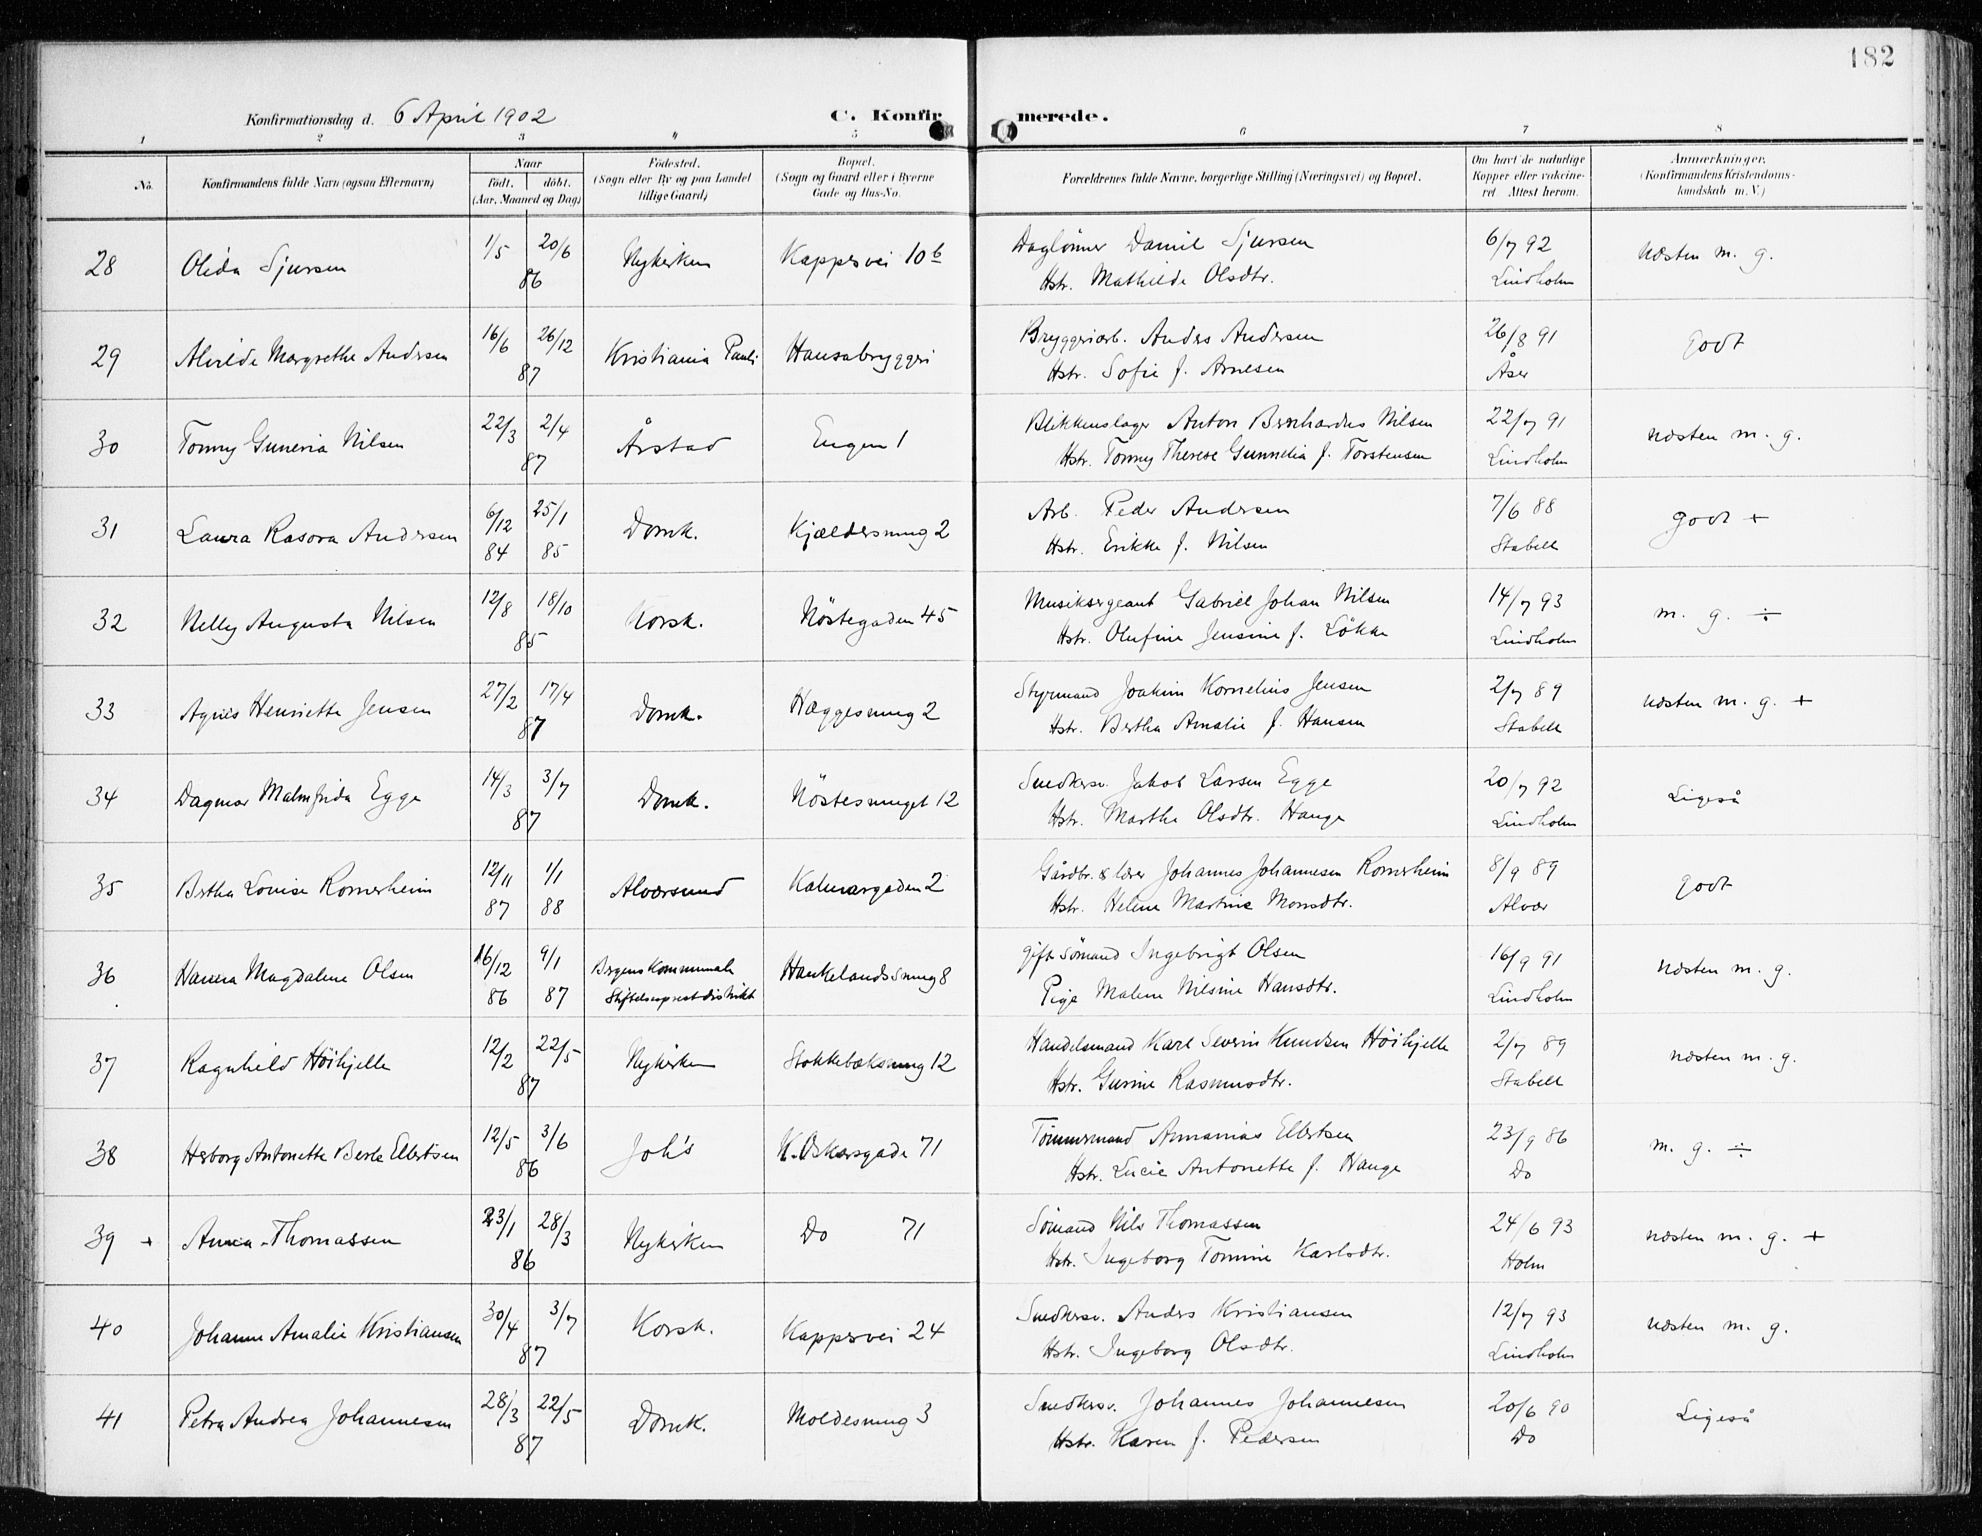 182
Konfirmationsdag d. 6 April 1902 C. Konfirmerede.
1 2 3 " 5 6 7 8
No. Konfirmandens fulde Navn (ogsaa Efternavn) Naar födt. döbt. (Aar, Maaned og Dag) Födested. (Sogn eller By og paa Landet tillige Gaard) Bopæl. (Sogn og Gaard eller i Byerne Gade og Hus-No. Forældrenes fulde Navne, borgerlige Stilling (Næringsvei) og Bopæl. Om havt de naturlige Kopper eller vakcineret. Attest herom. Anmærkninger. (Konfirmandens Kristendomskundskab m. V.)
28 Olida Sjursen 1/5 20/6 86 Nykirken Kappesvei 10b Daglönner Daniel Sjursen 6/7 92 næsten m. g.
Hstr. Mathilde Olsdtr. Lindholm
29 Alvilde Margrethe Andersen 16/6 26/12 87 Kristiania Pauli Hansabryggeri Bryggeriarb. Anders Andersen 26/8 91 godt
Hstr. Sofie f. Arnesen Åser
30 Tonny Guneria Nilsen 22/3 2/4 87 Årstad Engen 1 Blikkenslager Anton Bernhardus Nilsen 22/7 91 næsten m. g.
Hstr. Tonny Therese Gunnelia f. Torstensen Lindholm
31 Laura Rasora Andersen 6/12 84 25/1 85 Domk. Kjældersmug 2 Arb. Peder Andersen 7/6 88 godt +
Hstr. Erikke f. Nilsen Stabell
32 Nelly Augusta Nilsen 12/8 18/10 85 Korsk. Nöstegaden 45 Musiksergeant Gabriel Johan Nilsen 14/7 93 m. g. ÷
Hstr. Olufine Jensine f. Lökke Lindholm
33 Agnes Henriette Jensen 27/2 17/4 87 Domk. Hæggesmug 2 Styrmand Joakim Kornelius Jensen 2/7 89 næsten m. g. +
Hstr. Bertha Amalie f. Hansen Stabell
34 Dagmar Malmfrida Egge 14/3 3/7 87 Domk. Nöstesmuget 12 Snedkersv. Jakob Larsen Egge 20/7 92 Ligeså
Hstr. Marthe Olsdtr. Hauge Lindholm
35 Bertha Louise Romerheim 12/11 87 1/1 88 Alværsund Kalvargaden 2 Gårdbr. & lærer Johannes Johannesen Romerheim 8/9 89 godt
Hstr. Helene Martine Monsdtr. Alvær
36 Hanna Magdalene Olsen 16/12 86 9/1 87 Bergens Kommunale Stiftelsesprestdistrikt Haukelandssmug 8 gift Sömand Ingebrigt Olsen 16/9 91 næsten m. g.
Pige Malene Nilsine Hansdtr. Lindholm
37 Ragnhild Höihjelle 12/2 22/5 87 Nykirken Stokkebæksmug 12 Handelsmand Karl Severin Knudsen Höihjelle 2/7 89 næsten m. g.
Hstr. Gurine Rasmusdtr. Stabell
38 Herborg Antonette Berle Ellertsen 12/5 3/6 86 Joh's K. Oskarsgade 71 Tömmermand Annanias Ellertsen 23/9 86 m. g. ÷
Hstr. Lucie Antonette f. Hauge Do
39 + Anna Thomassen 23/1 28/3 86 Nykirken Do 71 Sömand Nils Thomassen 24/6 93 næsten m. g. +
Hstr. Ingeborg Tomine Karlsdtr. Holm
40 Johanne Amalie Kristiansen 30/4 3/7 87 Korsk. Kappesvei 24 Snedkersv. Anders Kristiansen 12/7 93 næsten m. g.
Hstr. Ingeborg Olsdtr. Lindholm
41 Petra Andrea Johannesen 28/3 22/5 87 Domk. Moldesmug 3 Snedkersv. Johannes Johannesen 20/6 90 Ligeså
Hstr. Karen f. Pedersen Do